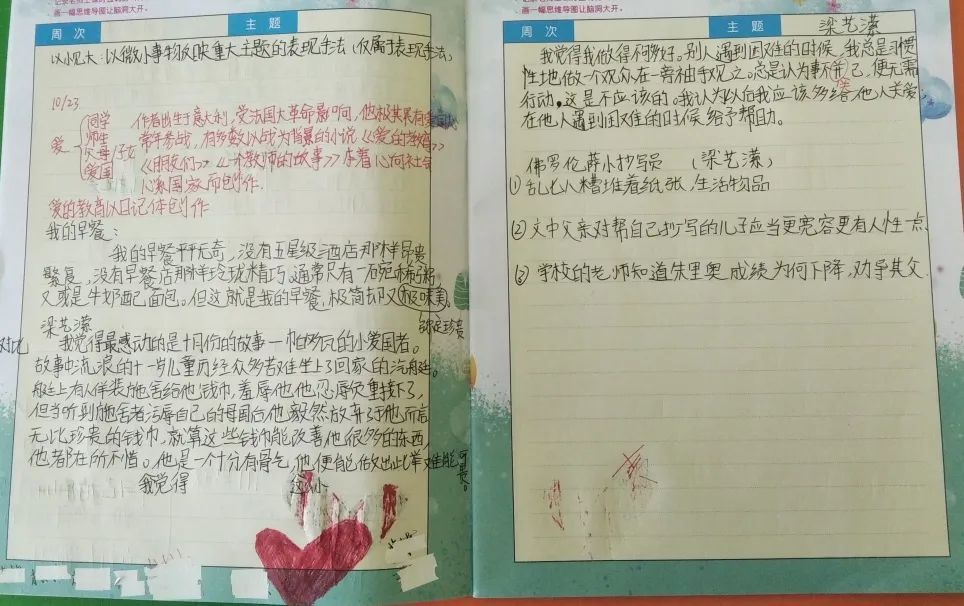 画一幅思维导图让脑洞大开。
周 次
主 题
以小见大：以微小事物反映重大主题的表现手法（仅属于表现手法）
10/23
爱
同学
师生
父母/子女
爱国
作者出生于意大利，受法国大革命影响，他极其具有爱国
常年参战，有多数以战为背景的小说《爱的教育》
《朋友们》《一个教师的故事》本着心向社会
心系国家而创作.
爱的教育以日记体创作
我的早餐：
我的早餐平平无奇，没有五星级酒店那样昂贵
繁复，没有早餐店那样玲珑精巧。通常只有一碗稀粥
又或是牛奶配面包。但这就是我的早餐，极简却又极味美
弥足珍贵
梁艺濛
对比
我觉得最感动的是十月份的故事一帕多瓦的小爱国者。
故事中流浪的十一岁儿童历经众多苦难坐上了回家的汽艇。
艇上有人佯装施舍给他钱币，羞辱他他忍辱负重接下了，
但当听到施舍者污辱自己的母国后他毅然放弃对他而言
无比珍贵的钱币，就算这些钱币能改善他很多的东西，
他都在所不惜。他是一个十分有骨气他便能做出此举难能
可贵。
我觉得 这小
画一幅思维导图让脑洞大开。
周 次
主 题
梁艺濛
我觉得我做得不够好。别人遇到困难的时候，我总是习惯
性地做一个观众在一旁袖手观之。总是认为事不关己，便无需
行动。这是不应该的。我认为以后我应该多给他人关爱，
在他人遇到困难的时候给予帮助。
佛罗伦萨小抄写员 （梁艺濛）
①乱七八糟堆着纸张，生活物品
②文中父亲对帮自己抄写的儿子应当更宽容更有人性一点
③学校的老师知道朱里奥成绩为何下降，劝导其父